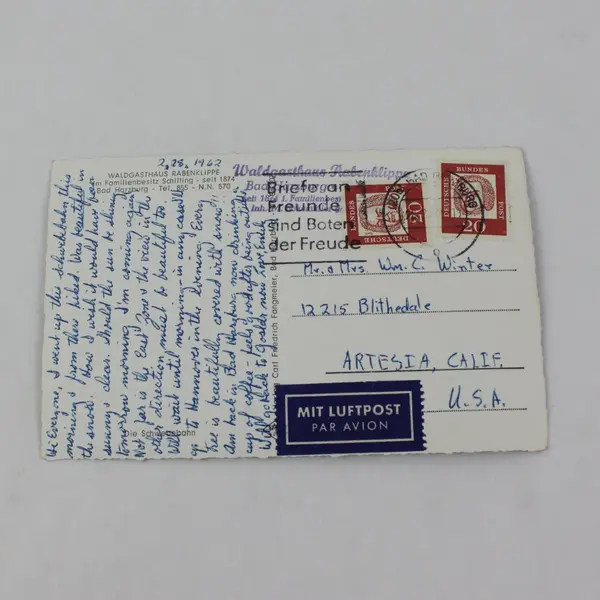 2,28,1962
WALDGASTHAUS RABENKLIPPE
im Familienbesitz Schilling - seit 1874
Bad Harzburg - Tel. 855 - N.N. 570
Hi Everyone, I went up this Schwebebahn this
morning & from there hiked. Was beautiful in
the snow. How I wish it would have been
sunny & clear. Should the sun be shining
tomorrow morning I'm coming again
Not far is the East Zone & the view in the
other direction must be beautiful too.
Will wait until morning - in any case I'll
go to Hannover in the evening. Every
tree is beautifully covered with snow!!
Am back in Bad Harzburg now drinking a
cup of coffee - feels good after being outside
Will go back to Goslar now. Love
Die Schwebebahn
Carl Friedrich Fangmeier, Bad
Waldgasthaus Rabenklippe
Bad Harzburg
seit 1874 i. Familienbes
Inh.
Briefe an
Freunde
sind Boten
der Freude
DEUTSCHE
BUNDES
20
DEUTSCHE
BUNDES
POST
20
Mr. & Mrs. Wm. C. Winter
12215 Blithedale
ARTESIA, CALIF.
U.S.A.
MIT LUFTPOST
PAR AVION